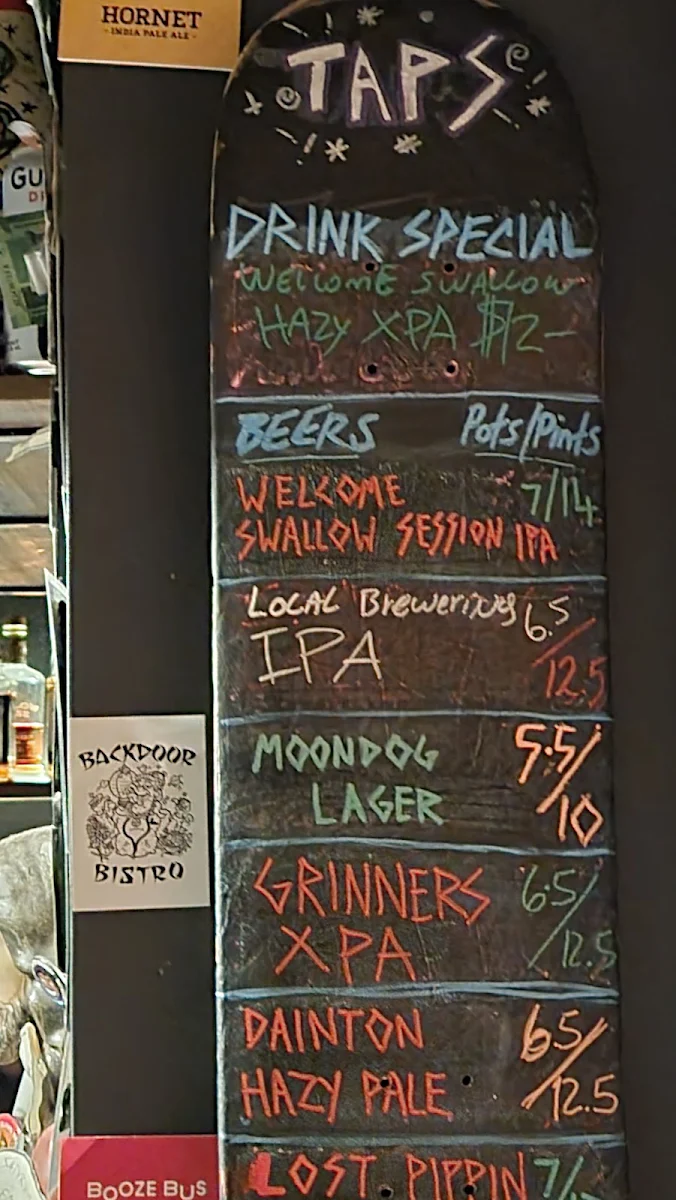 HORNET
- INDIA PALE ALE -
GU
TAPS
DRINK SPECIAL
WELCOME SWALLOW
HAZY XPA $12-
BEERS Pots/Pints
WELCOME 7/14
SWALLOW SESSION IPA
LOCAL Brewering 6.5
IPA /12.5
MOONDOG 5.5/
LAGER 10
GRINNERS 6.5/
XPA 12.5
DAINTON 6.5/
HAZY PALE 12.5
LOST PIPPIN 7/
BACKDOOR
BISTRO
BOOZE BUS